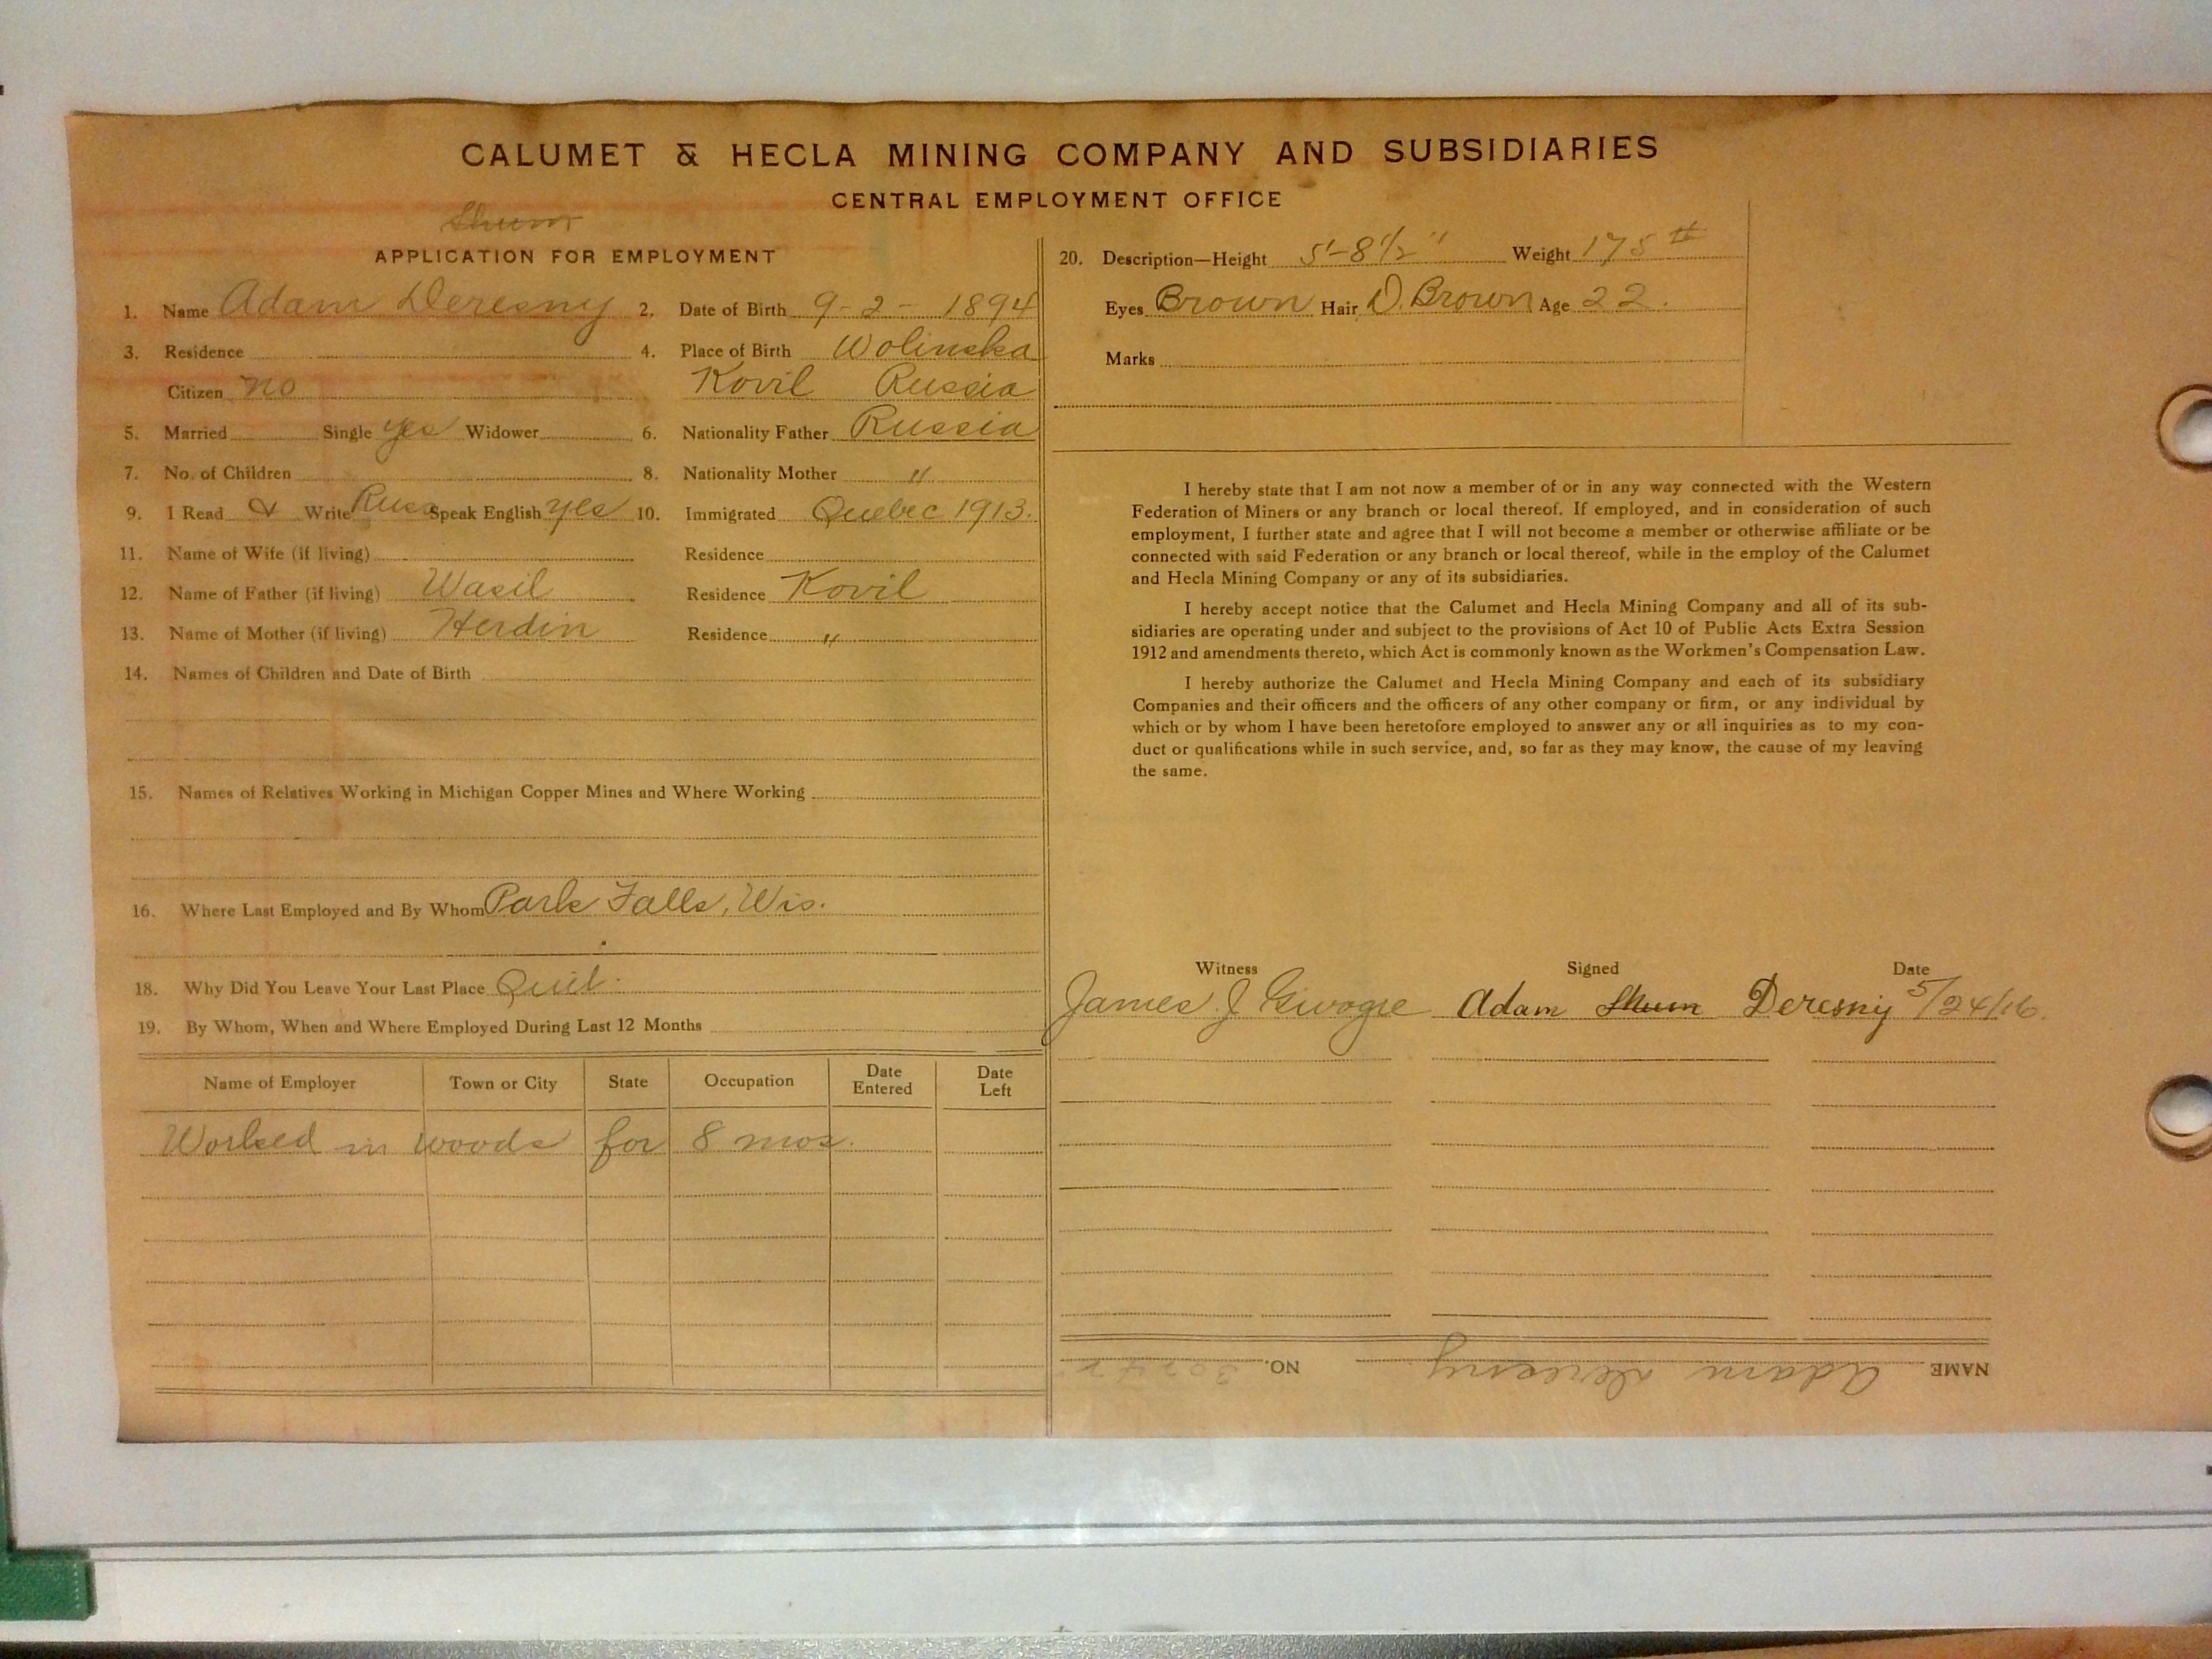 CALUMET & HECLA MINING COMPANY AND SUBSIDIARIES
CENTRAL EMPLOYMENT OFFICE
Shum
APPLICATION FOR EMPLOYMENT
1. Name Adam Deresny 2. Date of Birth 9-2-1894
3. Residence 4. Place of Birth Wolinska
Citizen no Kovil Russia
5. Married Single yes Widower 6. Nationality Father Russia
7. No. of Children 8. Nationality Mother "
9. I Read & Write Russ Speak English yes 10. Immigrated Quebec 1913.
11. Name of Wife (if living) Residence
12. Name of Father (if living) Wasil Residence Kovil
13. Name of Mother (if living) Herdin Residence "
14. Names of Children and Date of Birth
15. Names of Relatives Working in Michigan Copper Mines and Where Working
16. Where Last Employed and By Whom Park Falls, Wis.
18. Why Did You Leave Your Last Place Quit.
19. By Whom, When and Where Employed During Last 12 Months
Name of Employer Town or City State Occupation Date Entered Date Left
Worked in woods for 8 mos.
20. Description—Height 5'-8 1/2" Weight 175 #
Eyes Brown Hair D. Brown Age 22.
Marks
I hereby state that I am not now a member of or in any way connected with the Western
Federation of Miners or any branch or local thereof. If employed, and in consideration of such
employment, I further state and agree that I will not become a member or otherwise affiliate or be
connected with said Federation or any branch or local thereof, while in the employ of the Calumet
and Hecla Mining Company or any of its subsidiaries.
I hereby accept notice that the Calumet and Hecla Mining Company and all of its sub-
sidiaries are operating under and subject to the provisions of Act 10 of Public Acts Extra Session
1912 and amendments thereto, which Act is commonly known as the Workmen's Compensation Law.
I hereby authorize the Calumet and Hecla Mining Company and each of its subsidiary
Companies and their officers and the officers of any other company or firm, or any individual by
which or by whom I have been heretofore employed to answer any or all inquiries as to my con-
duct or qualifications while in such service, and, so far as they may know, the cause of my leaving
the same.
Witness Signed Date
James J Adam Shum Deresny 5/24/16.
NAME Adam Deresny NO.